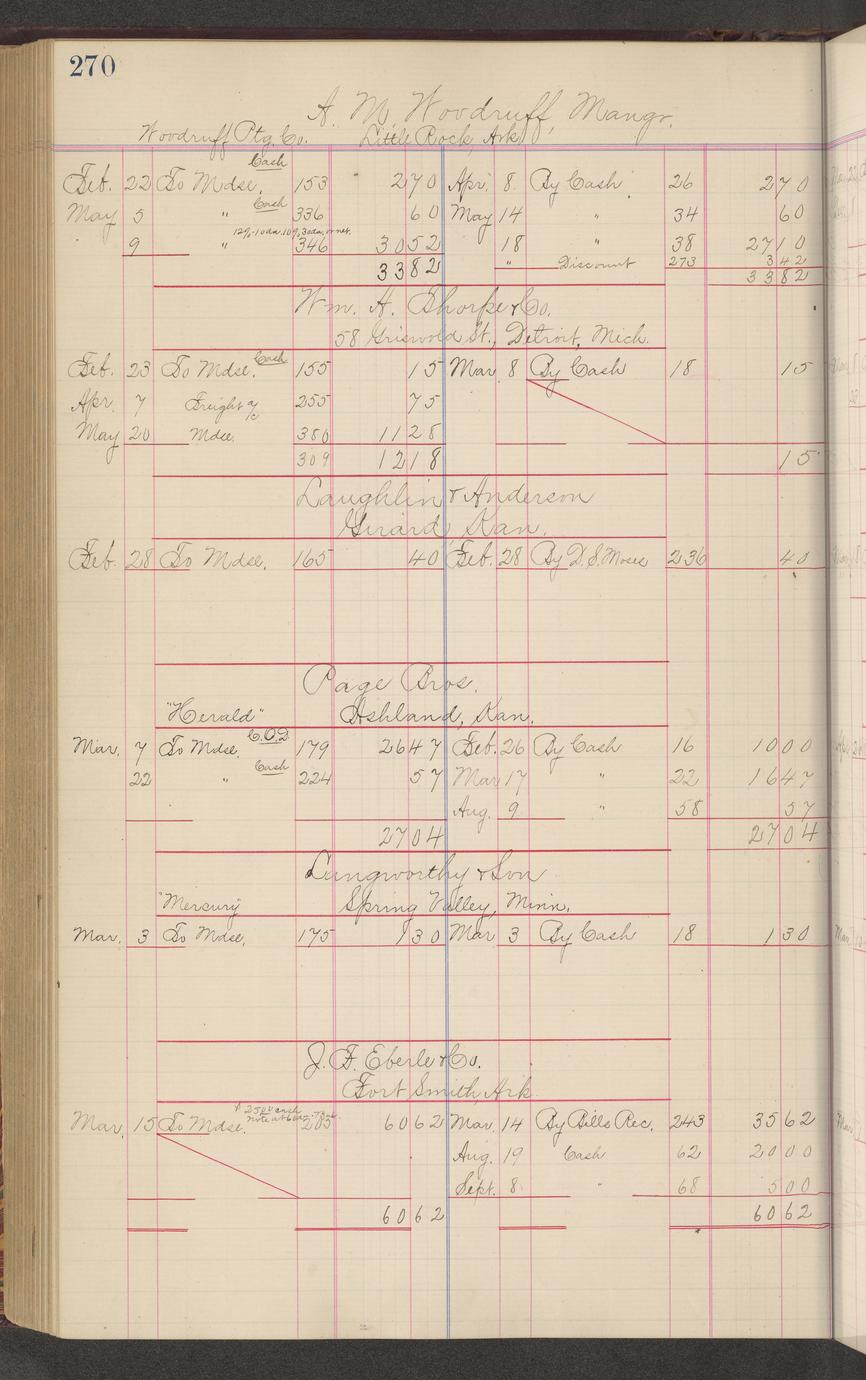 270
A. M. Woodruff, Mangr.
Woodruff Ptg. Co. Little Rock, Ark.
Cash
Feb. 22 To Mdse. 153 270 Apr. 8 By Cash 26 270
Cash
May 5 " 336 60 May 14 " 34 60
12%-10da. 10% 30da. or net.
9 " 346 3052 18 " 38 2710
3382 " Discount 273 342
3382
Wm. A. Thorpe & Co.
58 Griswold St., Detroit, Mich.
Cash
Feb. 23 To Mdse. 155 15 Mar 8 By Cash 18 15
Apr. 7 Freight a/c 255 75
May 20 Mdse. 380 1128
309 1218 15
Laughlin & Anderson
Girard, Kan.
Feb. 28 To Mdse. 165 40 Feb. 28 By D. S. 236 40
Page Bros.
"Herald" Ashland, Kan.
C.O.D
Mar. 7 To Mdse. 179 2647 Feb. 26 By Cash 16 1000
Cash
22 " 224 57 Mar 17 " 22 1647
Aug. 9 " 58 57
2704 2704
Lungworthy & Son
"Mercury" Spring Valley, Minn.
Mar. 3 To Mdse. 175 130 Mar 3 By Cash 18 130
J. F. Eberle & Co.
Fort Smith, Ark.
25 00 cash
note at
Mar. 15 To Mdse. 203 6062 Mar. 14 By Bills Rec. 243 3562
Aug. 19 Cash 62 2000
Sept. 8 " 68 500
6062 6062